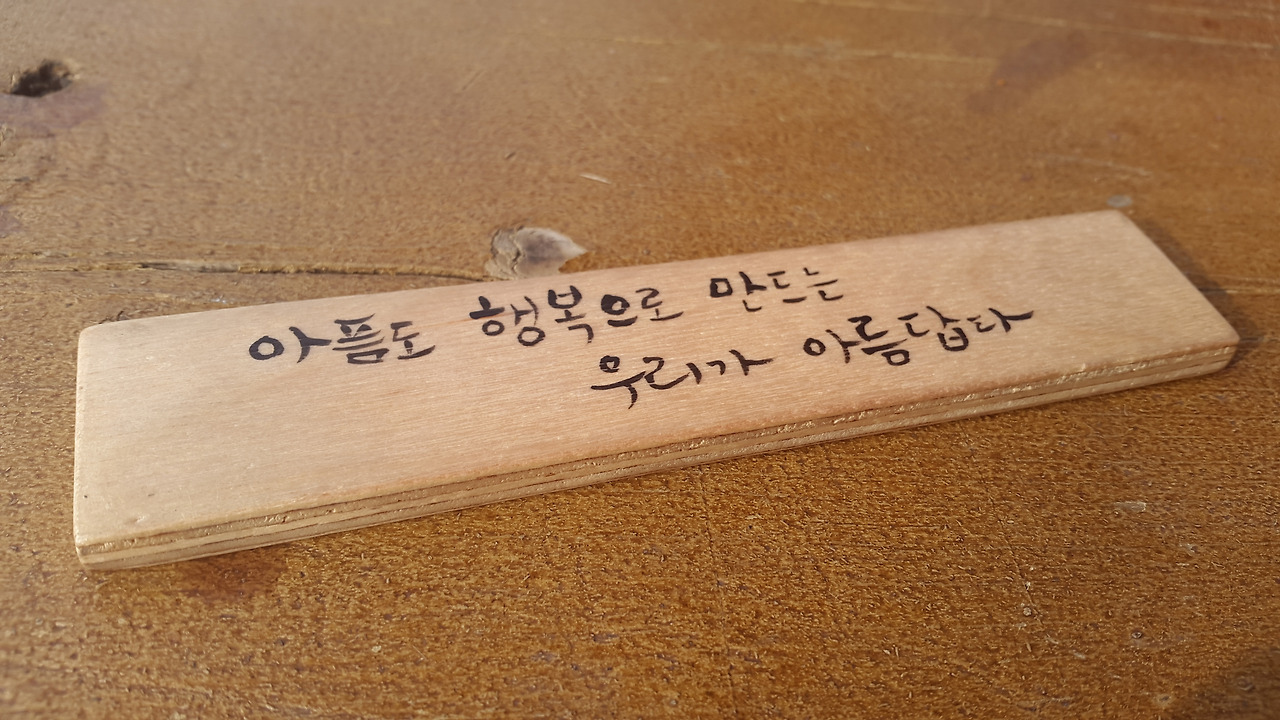 아픔도 행복으로 만드는
우리가 아름답다